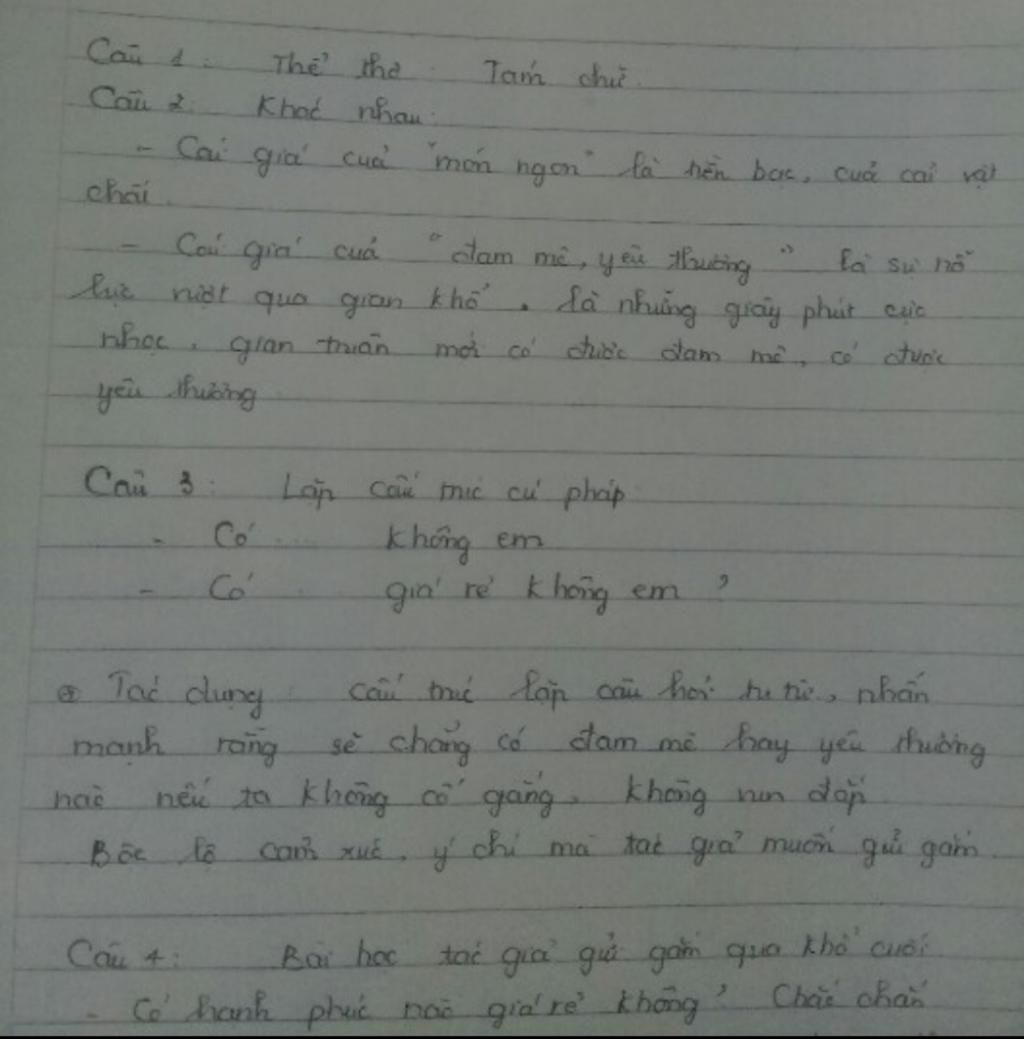 Câu 1: Thể thơ: Tám chữ.
Câu 2: Khác nhau:
- Cái giá của "món ngon" là tiền bạc, của cải vật
chất.
- Cái giá của "đam mê, yêu thương" là sự nỗ
lực vượt qua gian khổ, là những giây phút cực
nhọc, gian truân mới có được đam mê, có được
yêu thương
Câu 3: Lặp cấu trúc cú pháp
- Có ... không em
- Có ... giá rẻ không em?
⊕ Tác dụng: cấu trúc lặp câu hỏi tu từ, nhấn
mạnh rằng sẽ chẳng có đam mê hay yêu thương
nào nếu ta không cố gắng, không vun đắp
Bộc lộ cảm xúc, ý chí mà tác giả muốn gửi gắm.
Câu 4: Bài học tác giả gửi gắm qua khổ cuối
- Có hạnh phúc nào giá rẻ không? Chắc chắn